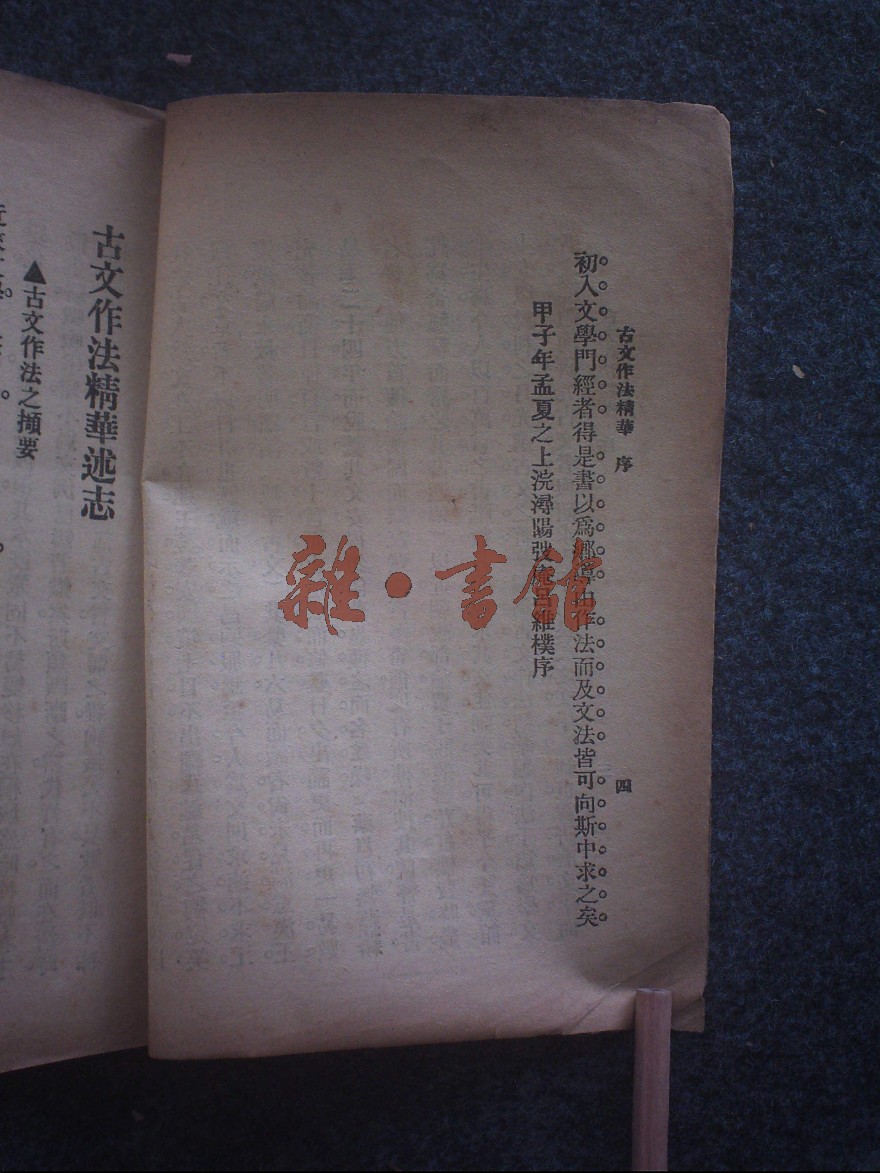 古文作法精華 序
四
初入文學門經者得是書以爲鄉導由作法而及文法皆可向斯中求之矣
甲子年孟夏之上浣潯陽弢廬呂維樸序
古文作法精華述志
▲古文作法之擷要
雜·書館